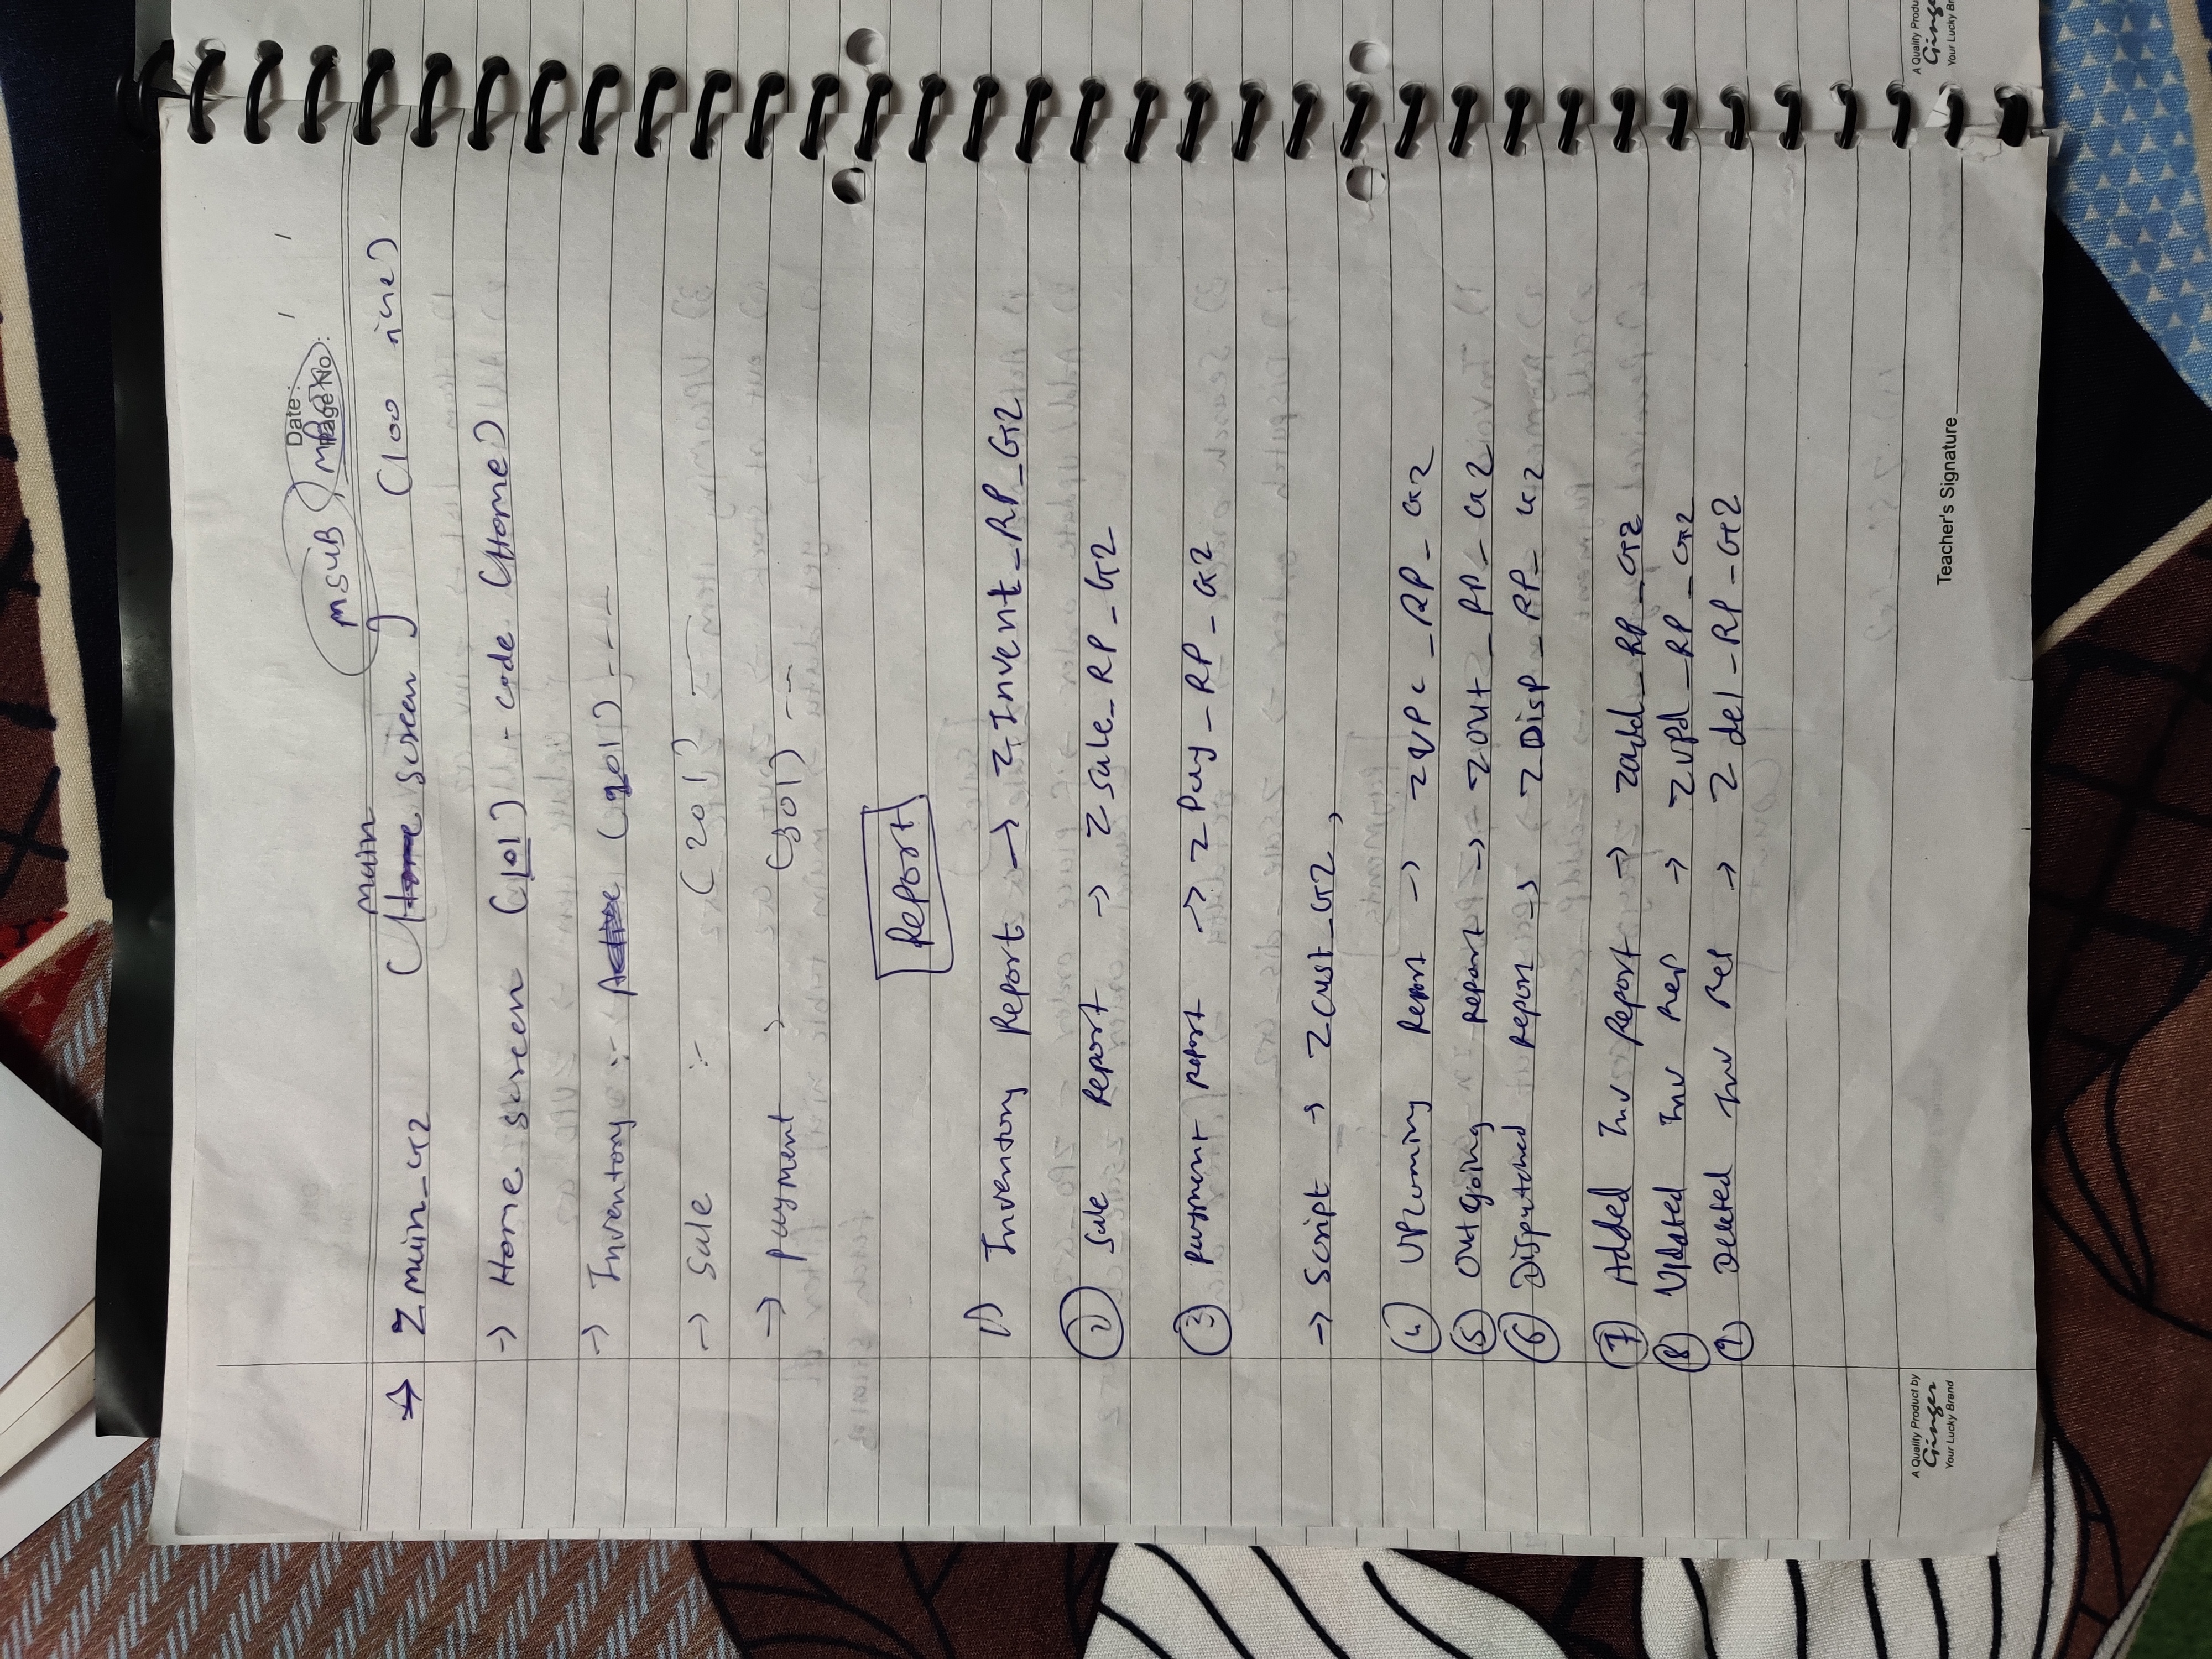 Date:
Page No:
MSUB
main
→ Zmain_G2 (Home screen) (100 line)
→ Home screen (101) - code (Home)
→ Inventory :- (901) ----
→ Sale :- (201) --
→ payment → (301) --
Report
1) Inventory Report → ZInvent_RP_G2
2) Sale Report → Zsale_RP_G2
3) payment report → ZPay_RP_G2
→ Script → Zcust_G2,
4) Upcoming Report → ZUPc_RP_G2
5) Outgoing report → ZOUt_RP_G2
6) Dispatched report → ZDisp_RP_G2
7) Added Inv Report → Zadd_RP_G2
8) Updated Inv Rep → ZUpd_RP_G2
9) Deleted Inv Rep → Zdel_RP_G2
Teacher's Signature
A Quality Product by
Ginger
Your Lucky Brand
A Quality Produ
Ginge
Your Lucky Bra